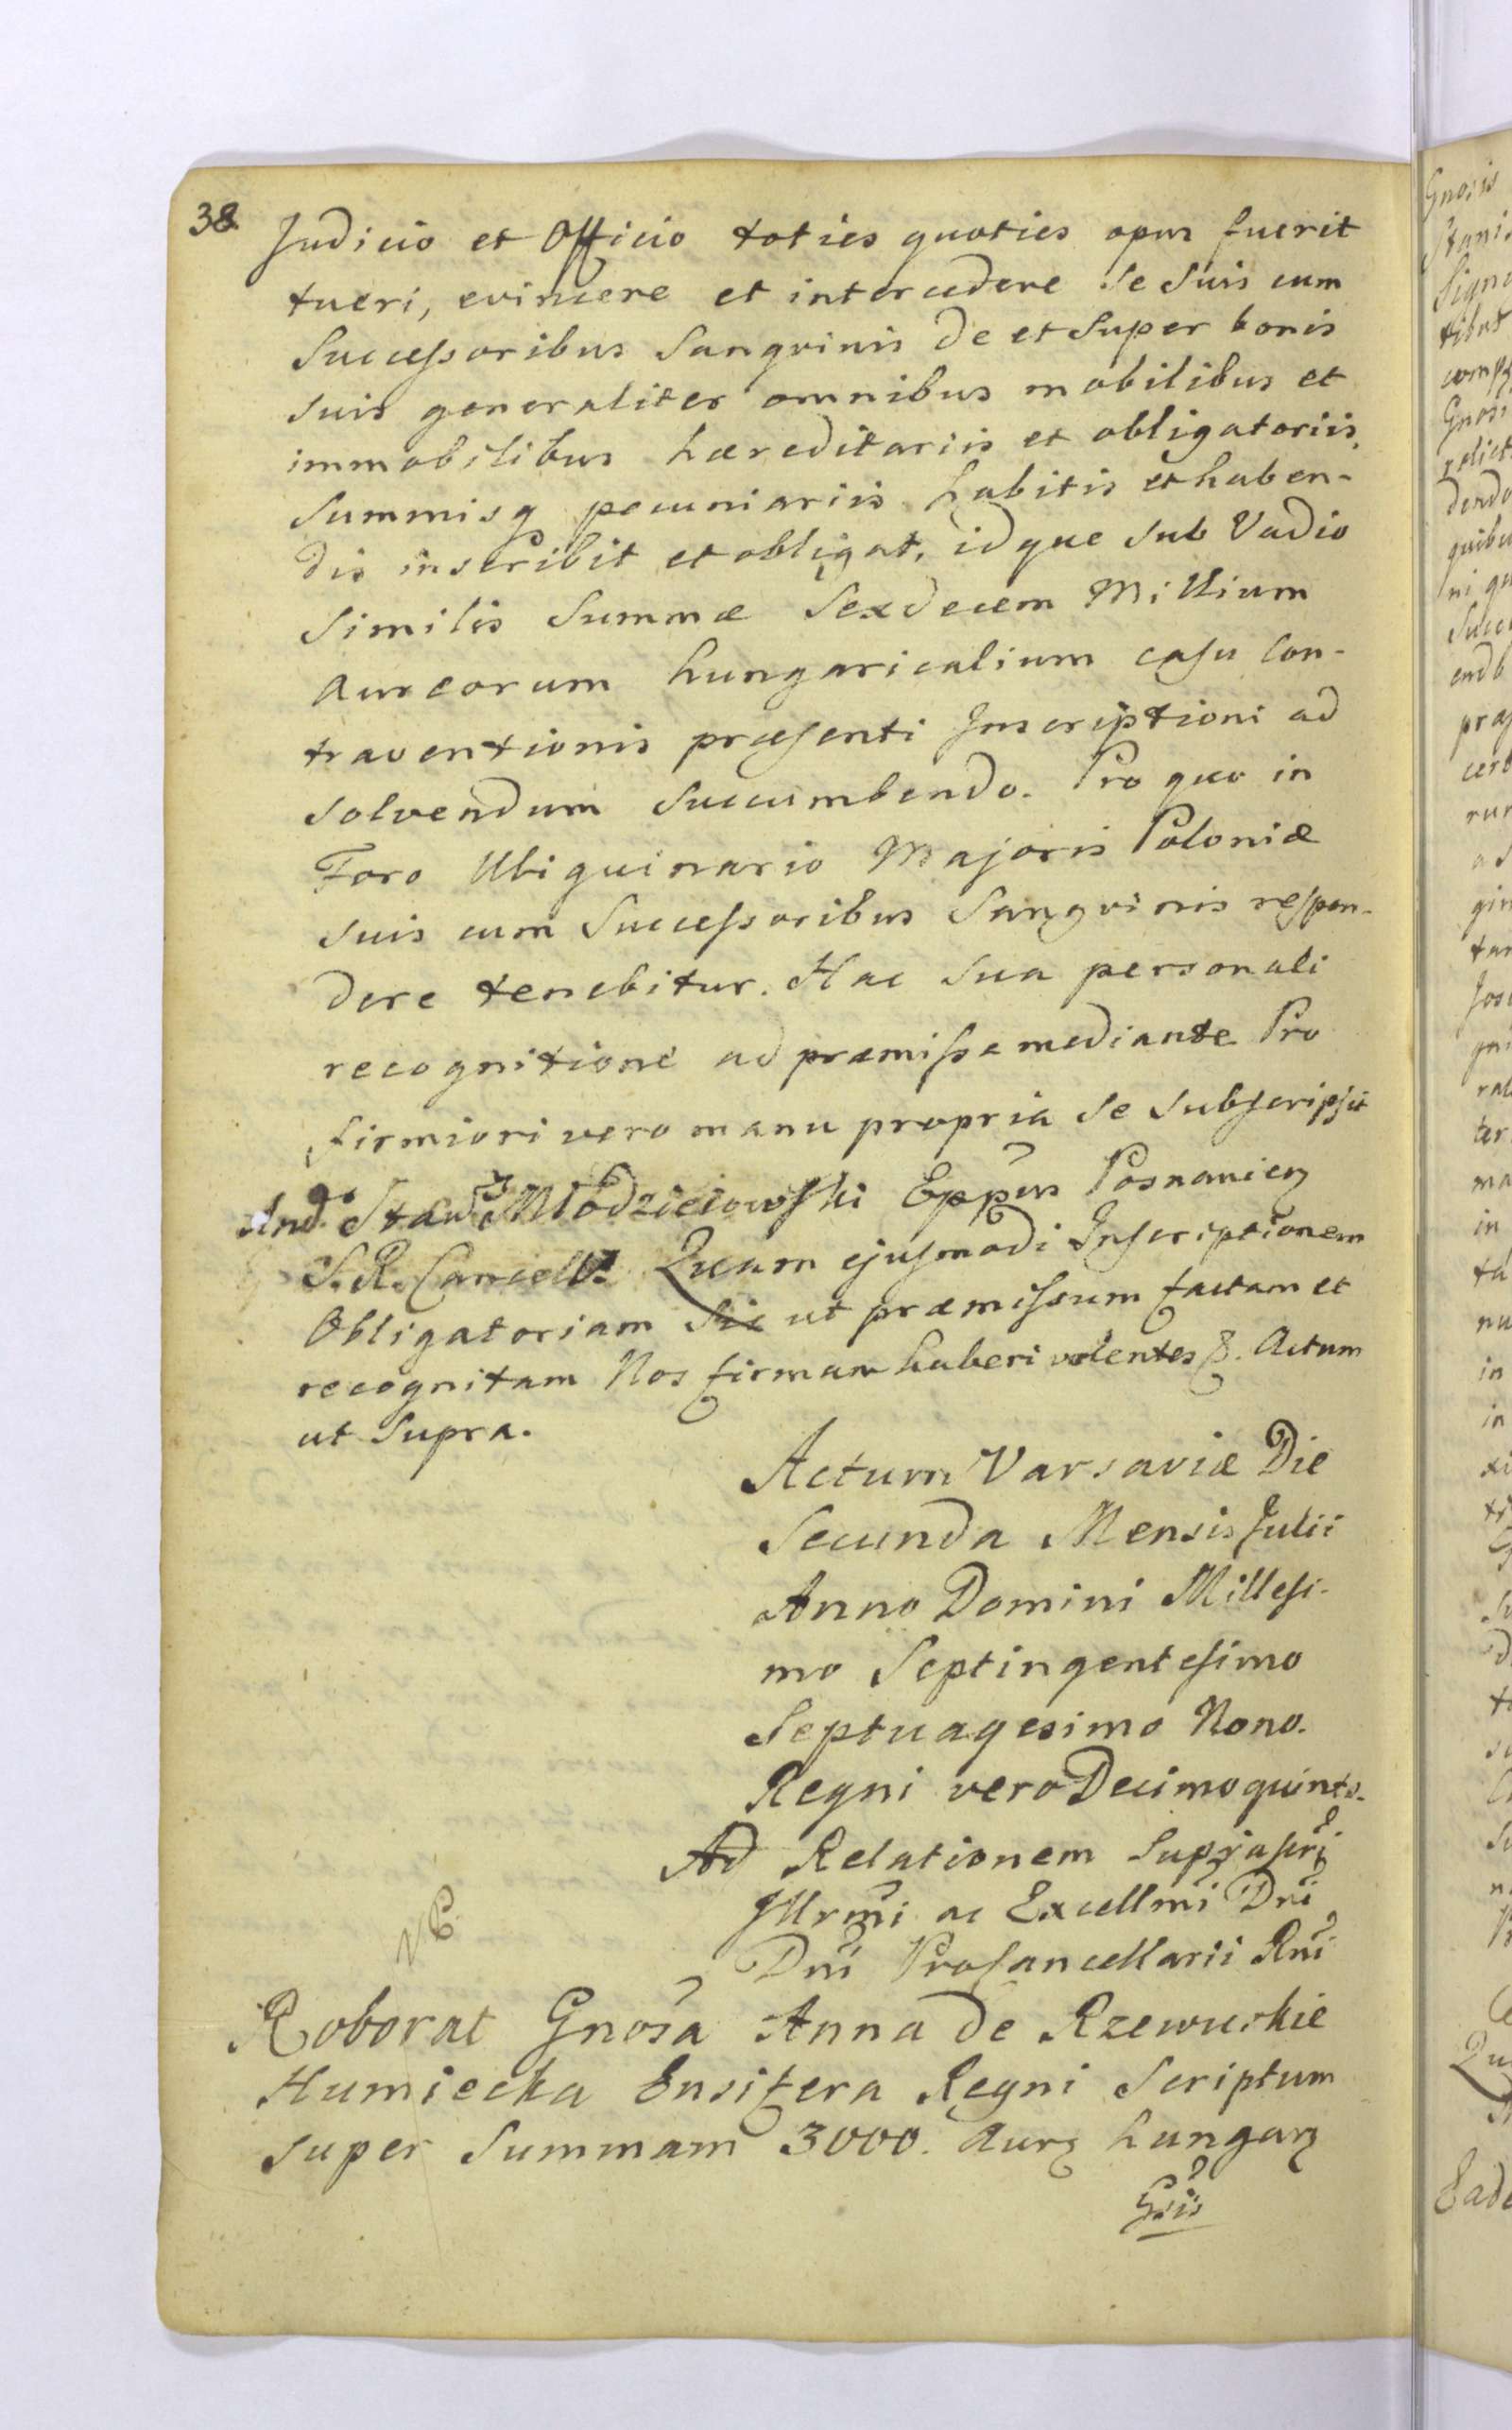 38
Judicio et Officio toties quoties opus fuerit
tueri, evincere et intercedere Se Suis cum
Successoribus Sangvinis de et Super bonis
suis generaliter omnibus mobilibus et
immobilibus hæreditariis et obligatoriis,
Summisq pecuniariis habitis et haben-
dis inscribit et obligat, idque sub Vadio
Similis Summæ Sexdecem Millium
Aureorum hungaricalium casu Con-
traventionis præsenti Inscriptioni ad
solvendum succumbendo. Pro quo in
Foro Ubiquinario Majoris Poloniæ
suis cum Successoribus Sangvinis respon-
dere tenebitur. Hac sua personali
recognitione ad præmissa mediante Pro
firmiori vero manu propria se subscripsit
And. Młodzieiowski Eppus Posnanien
S.R. Cancell. Quam ejusmodi Inscriptionem
Obligatoriam Sic ut præmissum factam et
recognitam Nos firmam haberi volentes &. Actum
ut Supra.
Actum Varsaviæ Die
Secunda Mensis Julii
Anno Domini Millesi-
mo Septingentesimo
Septuagesimo Nono.
Regni vero Decimoquinto.
Ad Relationem Suprascri
Illrmi ac Excellmi Dni
Dni ProCancellarii Rni
Roborat Gnosa Anna de Rzewuskie
Humiecka Ensifera Regni Scriptum
super Summam 3000. Aur hungar
Gsis
Gnosis